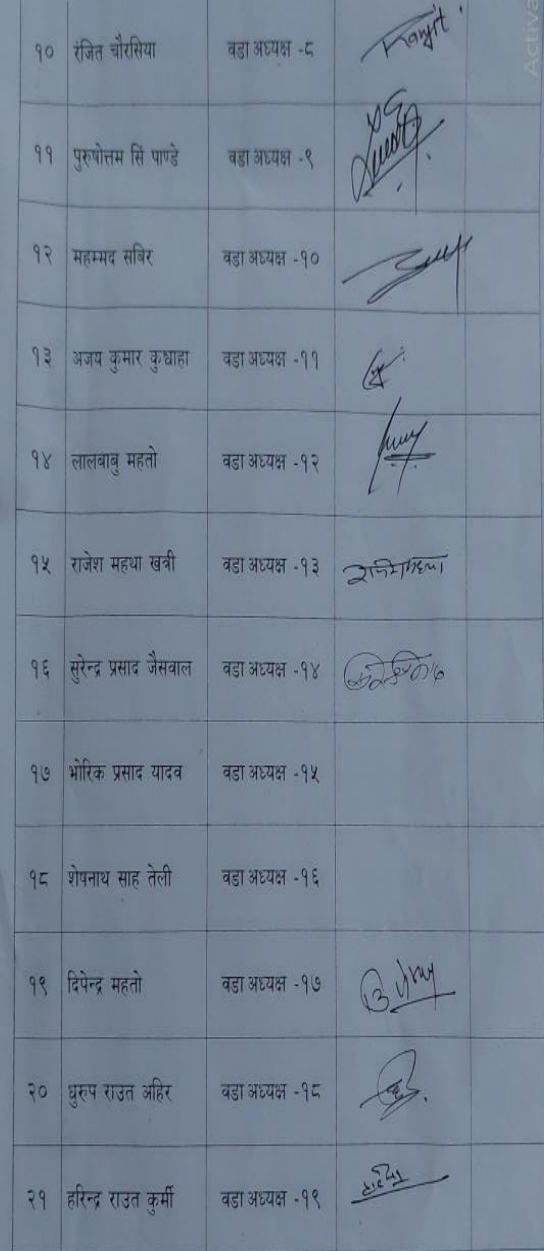 Activa
१० रंजित चौरसिया वडा अध्यक्ष -८ Ranjit
११ पुरुषोत्तम सिं पाण्डे वडा अध्यक्ष -९
१२ महम्मद सबिर वडा अध्यक्ष -१०
१३ अजय कुमार कुशाहा वडा अध्यक्ष -११
१४ लालबाबु महतो वडा अध्यक्ष -१२
१५ राजेश महथा खत्री वडा अध्यक्ष -१३
१६ सुरेन्द्र प्रसाद जैसवाल वडा अध्यक्ष -१४
१७ भोरिक प्रसाद यादव वडा अध्यक्ष -१५
१८ शेषनाथ साह तेली वडा अध्यक्ष -१६
१९ दिपेन्द्र महतो वडा अध्यक्ष -१७
२० धुरुप राउत अहिर वडा अध्यक्ष -१८
२१ हरिन्द्र राउत कुर्मी वडा अध्यक्ष -१९